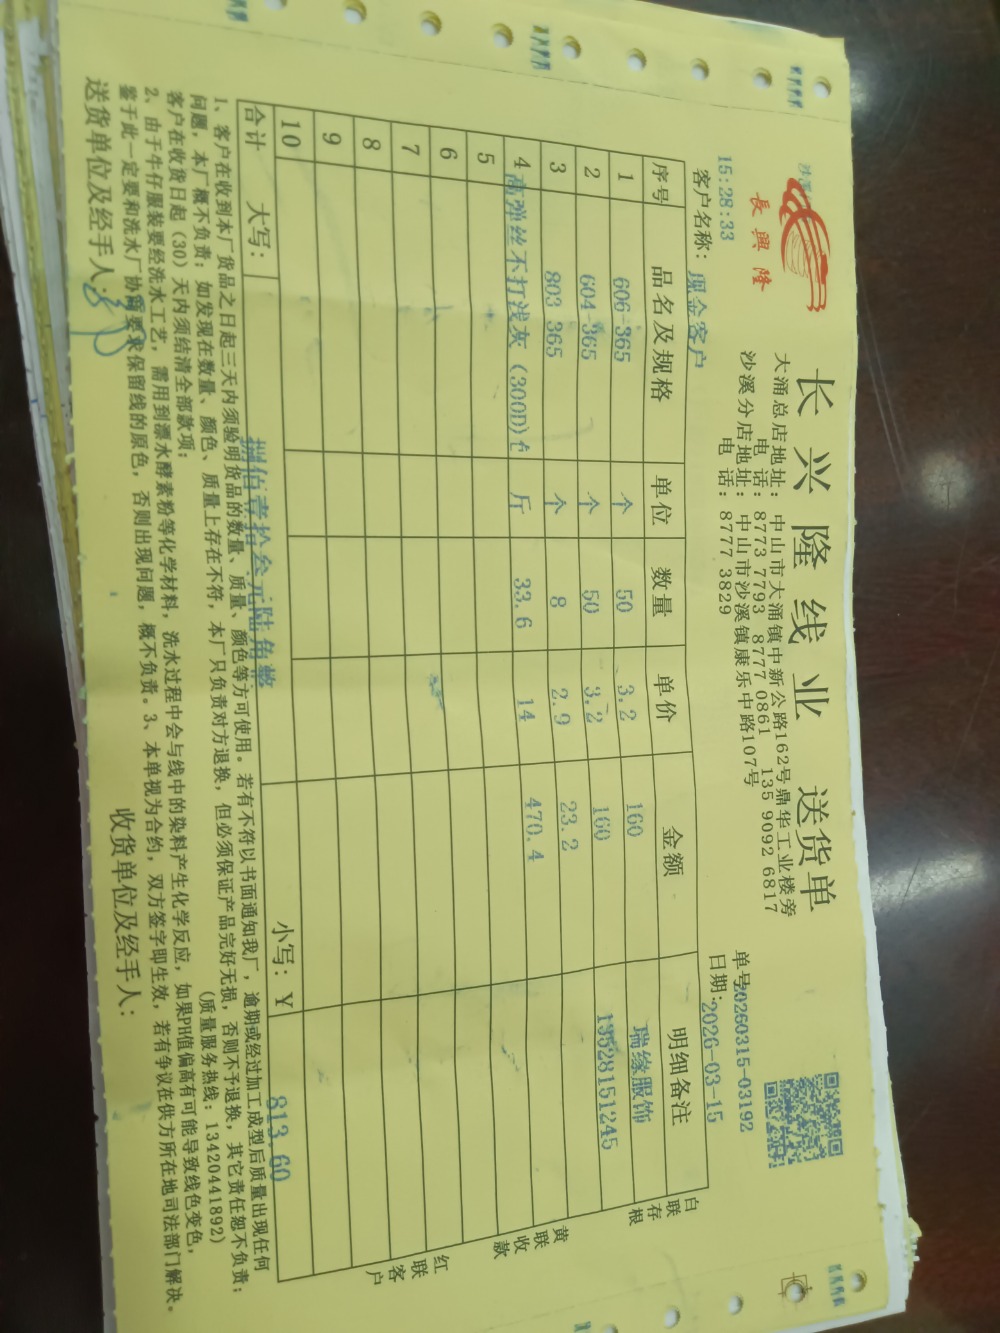 長興隆
长兴隆线业 送货单
大涌总店地址：中山市大涌镇中新公路162号鼎华工业楼旁
电话：8773 7793 8777 0861 135 9092 6817
沙溪分店地址：中山市沙溪镇康乐中路107号
电话：8777 3829
单号20260315-03192
15:28:33
日期：2026-03-15
客户名称：现金客户
序号 品名及规格 单位 数量 单价 金额 明细备注
1 606-365 个 50 3.2 160 瑞缘服饰
2 604-365 个 50 3.2 160 13528151245
3 803 365 个 8 2.9 23.2
4 高弹丝不打浅灰（300D） 斤 33.6 14 470.4
5
6
7
8
9
10
合计 大写：捌佰壹拾叁元陆角整 小写：Y 813.60
白联存根
黄联收款
红联客户
1、客户在收到本厂货品之日起三天内须验明货品的数量、质量、颜色等方可使用。若有不符以书面通知我厂，逾期或经过加工成型后质量出现任何
问题，本厂概不负责；如发现在数量、颜色、质量上存在不符，本厂只负责对方退换，但必须保证产品完好无损，否则不予退换，其它责任恕不负责；
客户在收货日起（30）天内须结清全部款项； （质量服务热线：13420441892）
2、由于牛仔服装要经洗水工艺，需用到漂水酵素粉等化学材料，洗水过程中会与线中的染料产生化学反应，如果PH值偏高有可能导致线色变色，
鉴于此一定要和洗水厂协商要求保留线的原色，否则出现问题，概不负责。3、本单视为合约，双方签字即生效，若有争议在供方所在地司法部门解决。
送货单位及经手人： 收货单位及经手人：